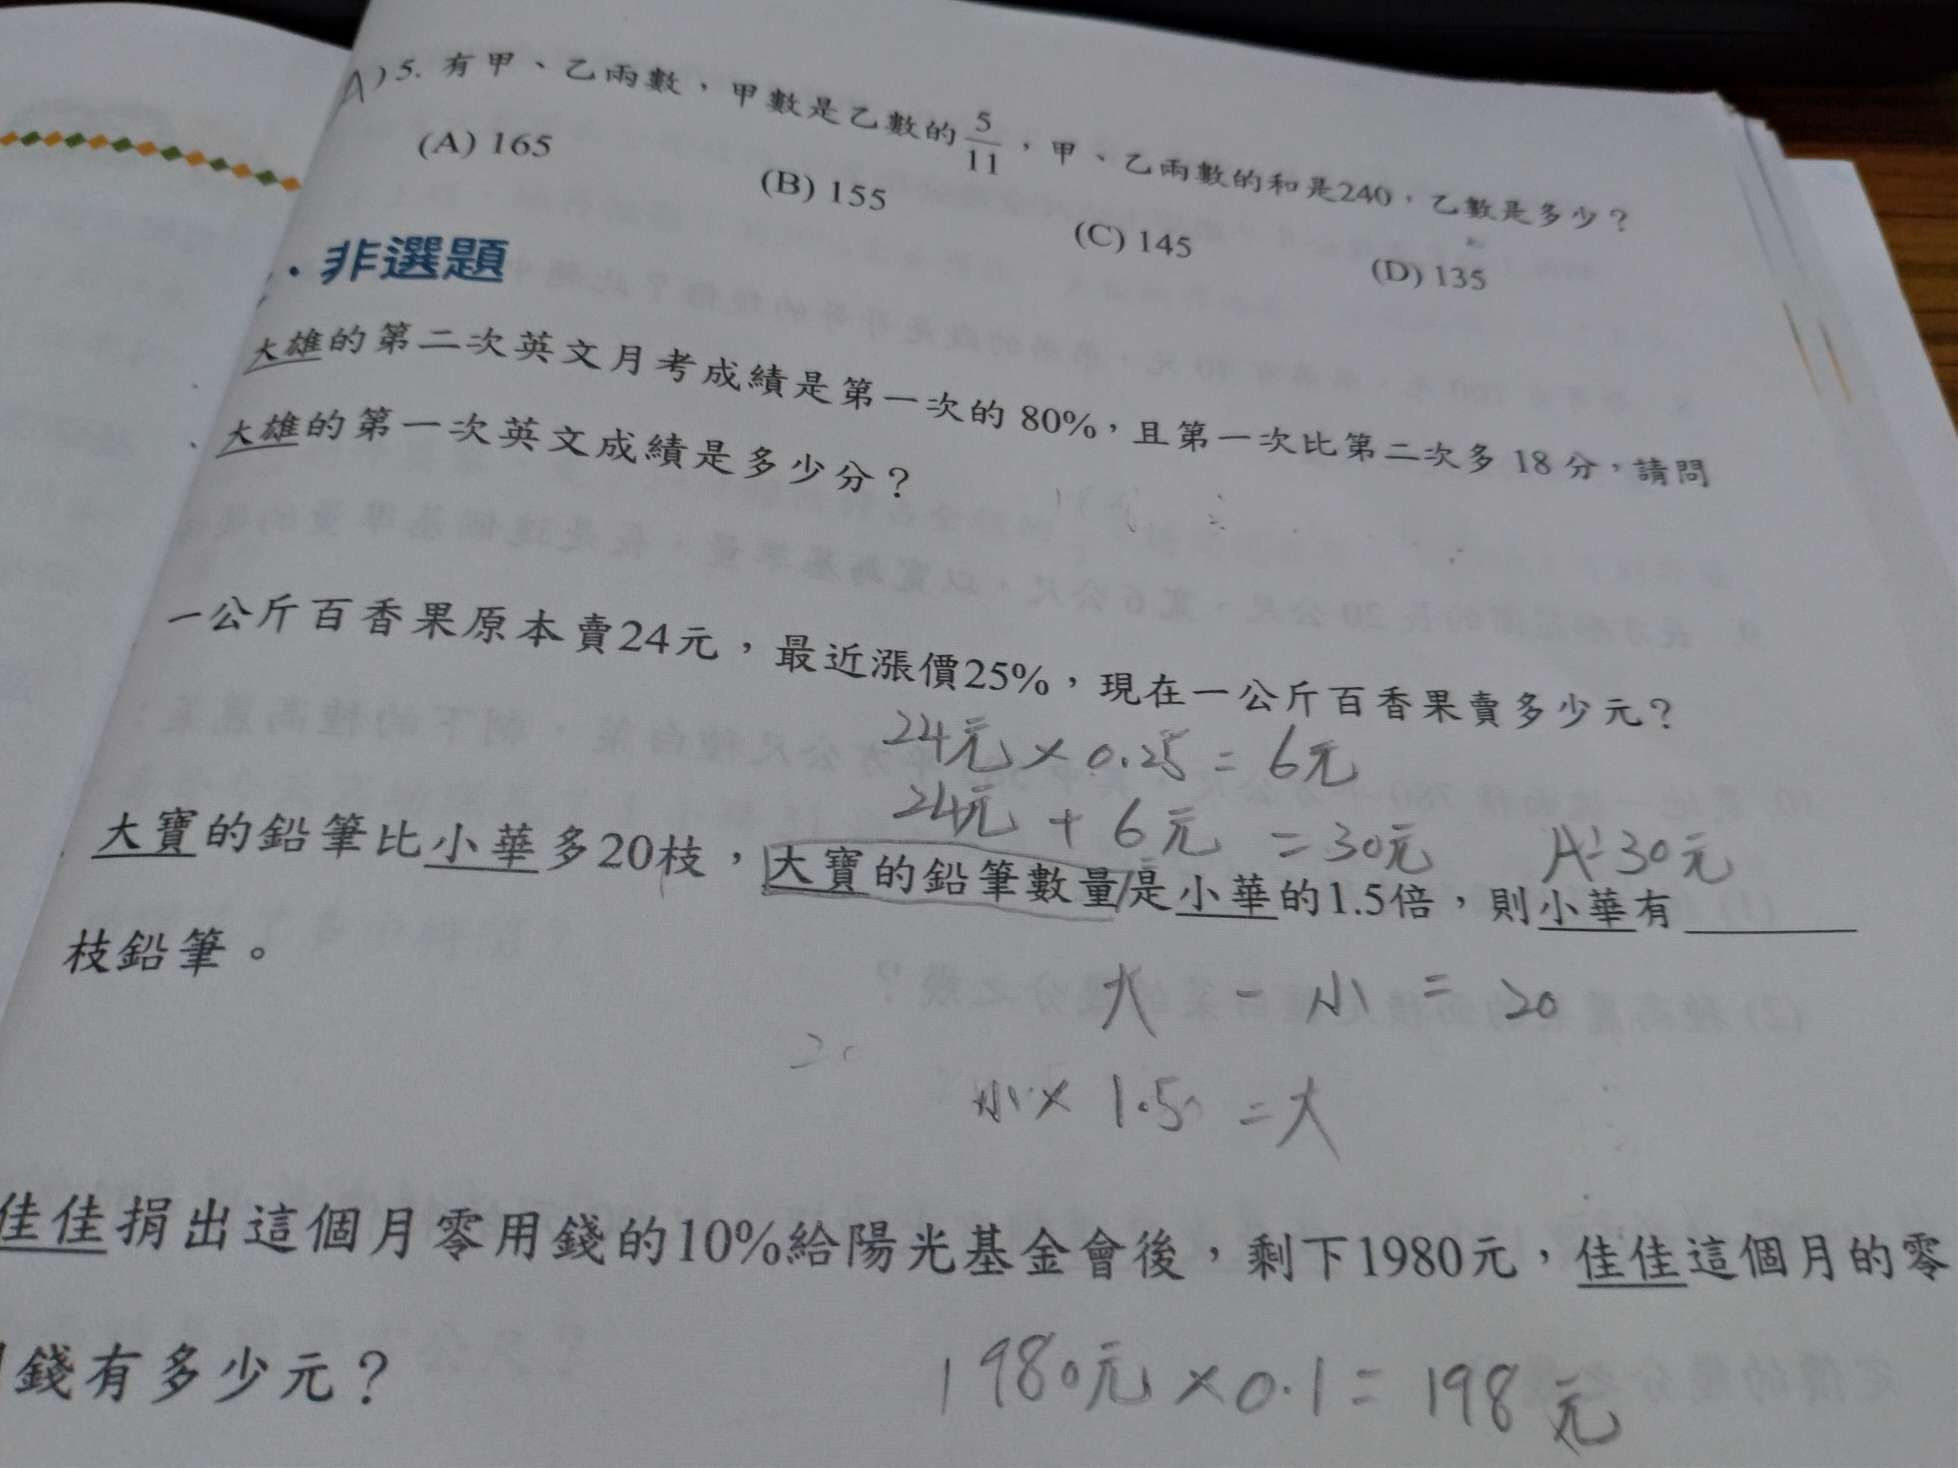 A)5. 有甲、乙兩數,甲數是乙數的5/11,甲、乙兩數的和是240,乙數是多少?
(A) 165 (B) 155 (C) 145 (D) 135
.非選題
大雄的第二次英文月考成績是第一次的 80%,且第一次比第二次多 18 分,請問
大雄的第一次英文成績是多少分?
一公斤百香果原本賣24元,最近漲價25%,現在一公斤百香果賣多少元?
24元×0.25=6元
24元+6元=30元 A:30元
大寶的鉛筆比小華多20枝,大寶的鉛筆數量是小華的1.5倍,則小華有______
枝鉛筆。
大-小=20
小×1.5=大
佳佳捐出這個月零用錢的10%給陽光基金會後,剩下1980元,佳佳這個月的零
錢有多少元?
1980元×0.1=198元